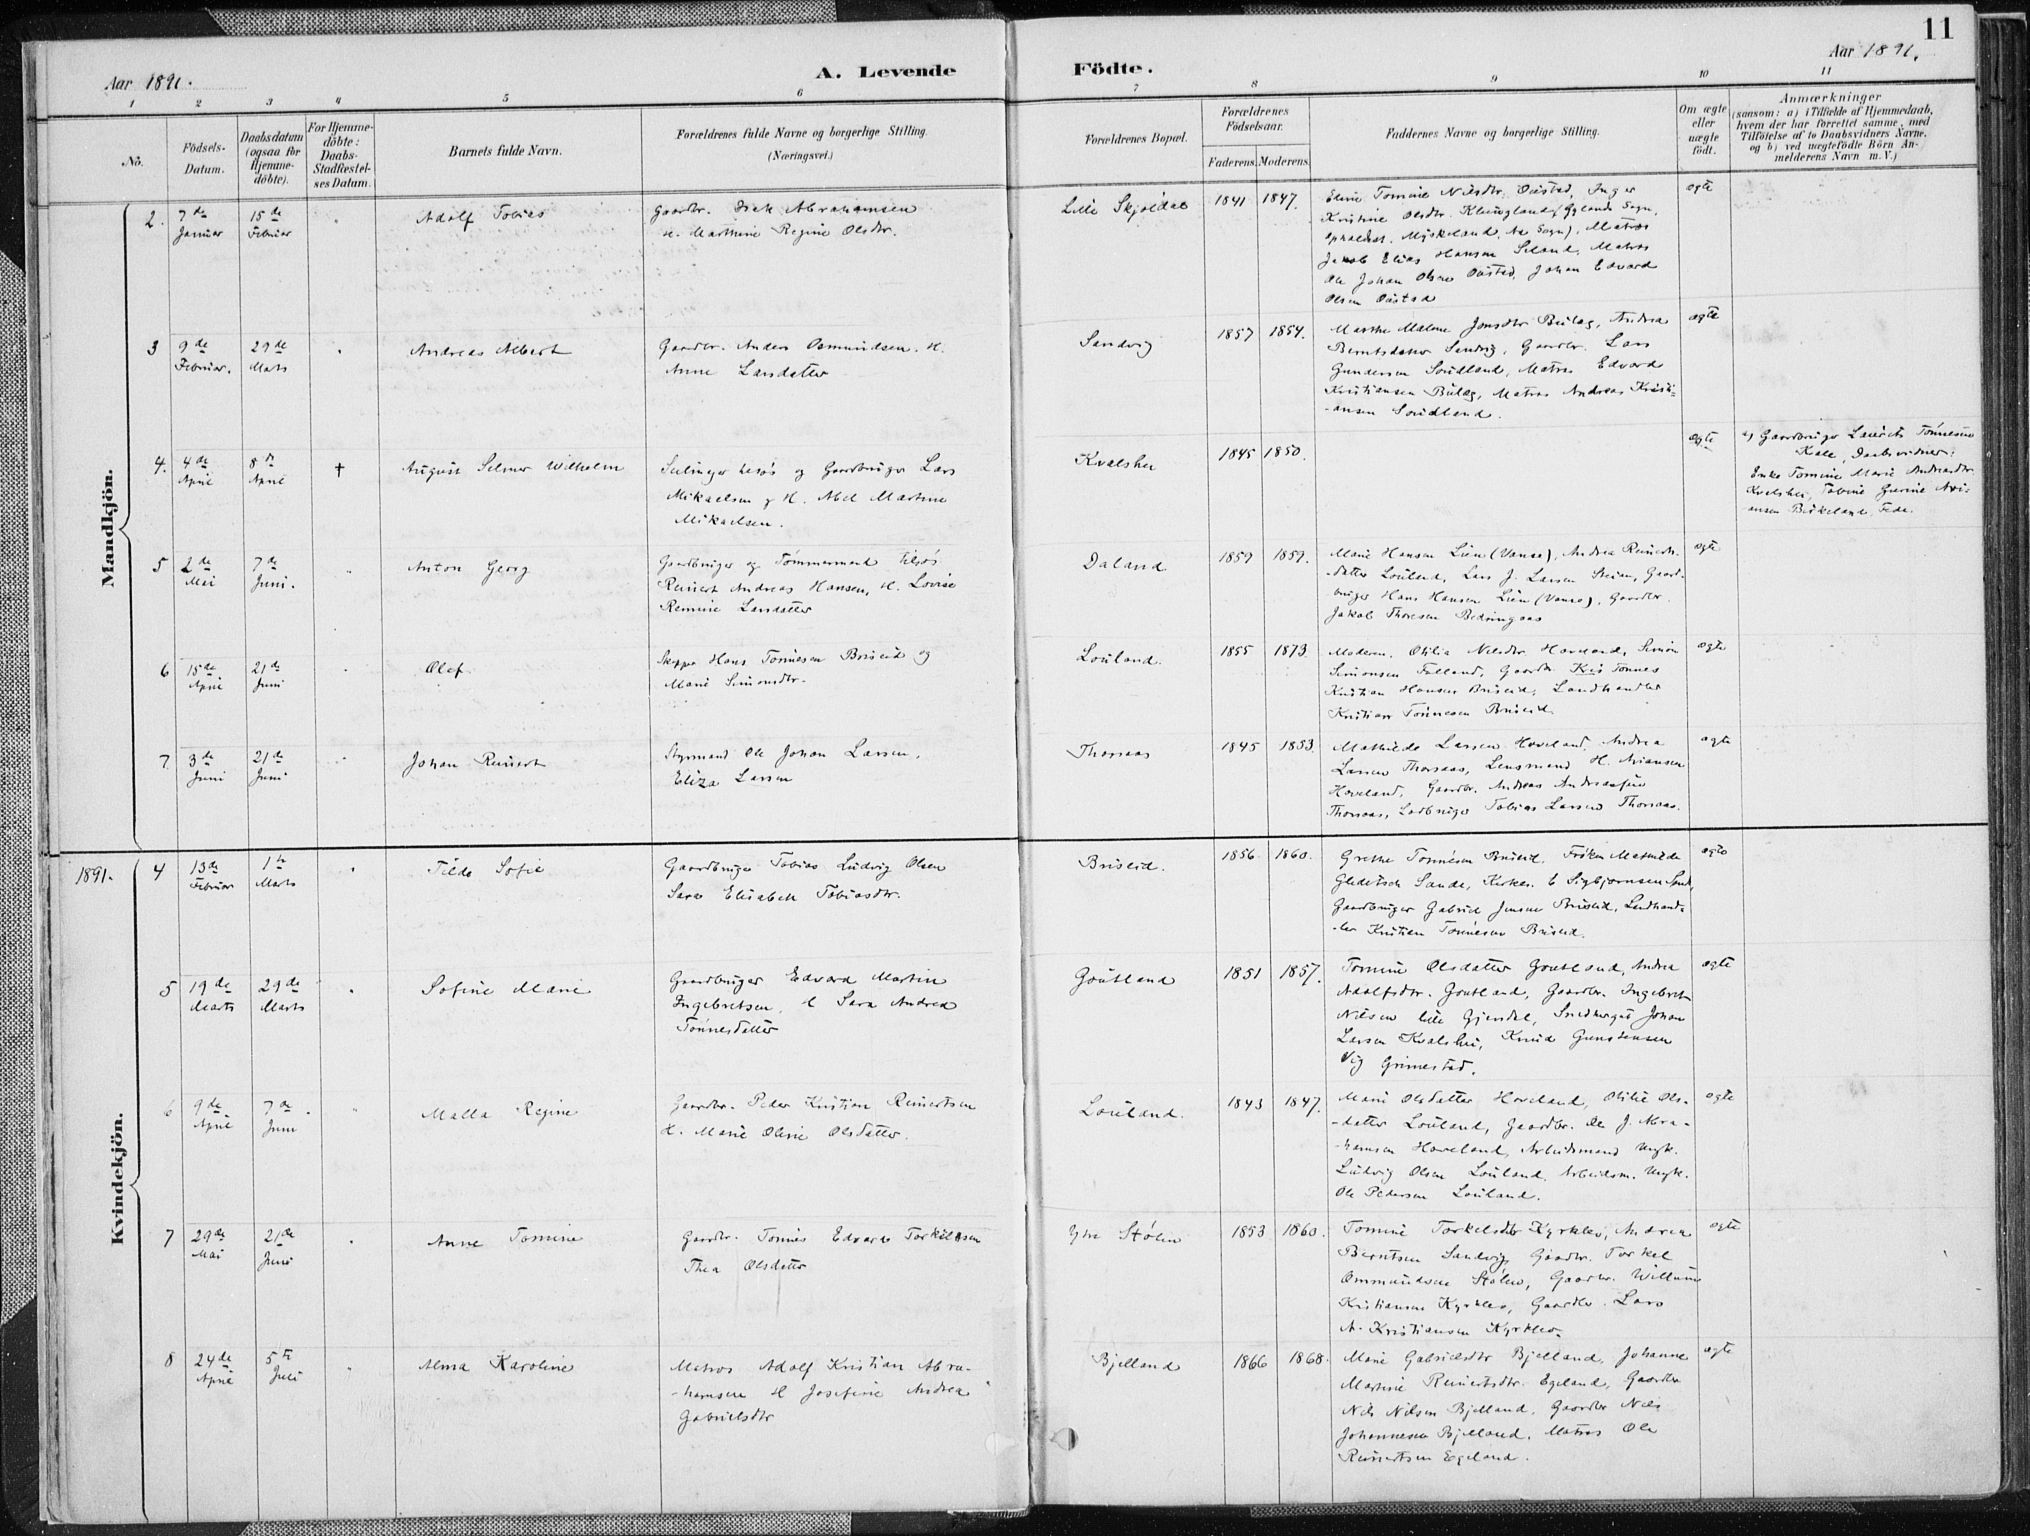 11
Aar 1891.
A. Levende Födte.
Aar 1891.
1 2 3 4 5 6 7 8 9 10 11
No.
Födsels-
Datum.
Daabsdatum
(ogsaa for
Hjemme-
döbte).
For Hjemme-
döbte:
Daabs-
Stadfæstel-
ses Datum.
Barnets fulde Navn.
Forældrenes fulde Navne og borgerlige Stilling.
(Næringsvei.)
Forældrenes Bopæl.
Forældrenes
Födselsaar.
Faderens. Moderens.
Faddernes Navne og borgerlige Stilling.
Om ægte
eller
uægte
födt.
Anmærkninger
(saasom: a) i Tilfælde af Hjemmedaab,
hvem der har forrettet samme, med
Tilföielse af to Daabsvidners Navne,
og b) ved uægtefödte Börn An-
melderens Navn m. V.)
Mandkjön.
2. 7de Januar
15de Februar
Adolf Tobias
Gaardbr. Isak Abrahamsen
H. Marthine Regine Olsdtr.
Lille Skjoldal
1841 1847.
Elene Tomine Nilsdtr. Oustad, Inger
Kristine Olsdtr. Klungland (Gylands Sogn,
opholdst. Myskeland, Næs Sogn), Matros
Jakob Elias Hansen Seland, Matros
Ole Johan Olsen Oustad, Johan Edvard
Olsen Oustad
ægte
3 9de Februar.
29de Marts
Andreas Albert
Gaardbr. Anders Osmundsen. H.
Anne Larsdatter
Sandvig
1857 1854.
Marthe Malene Jonsdtr Bulæg, Andrea
Berntsdatter Sandvig, Gaardbr. Lars
Gundersen Soudland, Matros Edvard
Kristiansen Bulæg, Matros Andreas Kristi-
-ansen Soudland.
ægte
4. 4de April
8de April
†
August Selmer Wilhelm
og Gaardbruger Lars
Mikaelsen og H. Abel Martine
Mikaelsen.
Kvalshei
1845 1850.
ægte
a) Gaardbruger Lauritz Tönnesen
Kale, Daabsvidner:
Enke Tomine Marie Andreasdtr.
Kvalshei, Tobine Gurine Ari-
ansen Birkeland, Fede.
5 2de Mai
7de Juni.
Anton Georg
Gaardbruger og Tömmermand tilsjös
Reinert Andreas Hansen, H. Lovise
Remine Larsdatter
Daland
1859 1859.
Marie Hansen Lien (Vanse), Andrea Reinerts-
-datter Louland, Lars J. Larsen Steian, Gaard-
bruger Hans Hansen Lien (Vanse), Gaardbr.
Jakob Thoresen Bedringaas
ægte
6 15de April
21de Juni
Olaf
Skipper Hans Tönnesen Briseid og
Marie Simonsdtr.
Louland.
1855 1873.
Moderen, Otilia Nilsdtr. Hoveland, Simon
Simonsen Folland, Gaardbr. Tönnes
Kristian Hansen Briseid, Landhandler
Kristian Tönnesen Briseid.
ægte
7. 3de Juni
21de Juni
Johan Reinert
Styrmand Ole Johan Larsen,
Eliza Larsen
Thorsaas
1845 1853.
Mathilde Larsen Hoveland, Andrea
Larsen Thorsaas, Lensmand H. Ariansen
Hoveland, Gaardbr. Andreas Andreassen
Thorsaas, Lodbruger Tobias Larsen Thorsaas.
ægte
Kvindekjön.
1891. 4 13de Februar
1te Marts
Tilda Sofie
Gaardbruger Tobias Ludvig Olsen
Sara Elisabeth Tobiasdtr.
Briseid.
1856 1860.
Grethe Tonnesen Briseid, Fröken Mathilde
Gleditsch Sande, Kirkes. E Sigbjornsen Sande,
Gaardbruger Gabriel Jensen Briseid, Landhand-
-ler Kristian Tönnesen Briseid.
ægte
5 19de Marts
29de Marts
Sofine Marie
Gaardbruger Edvard Martin
Ingebretsen, H Sara Andrea
Tönnesdatter
Goutland
1851 1857.
Tomine Olsdatter Goutland, Andrea
Adolfsdtr. Goutland, Gaardbr. Ingebret
Nilsen lille Gjersdal, Snedkergut Johan
Larsen Kvalshei, Knud Gunstensen
Vig Grimestad.
ægte
6 9de April
7de Juni
Malla Regine
Gaardbr. Peder Kristian Reinertsen
H. Marie Oline Olsdatter.
Louland.
1843 1847.
Marie Olsdatter Hoveland, Otilie Ols-
-datter Louland, Gaardbr. Ole J. Abra-
-hamsen Hoveland, Arbeidsmand Ungk.
Ludvig Olsen Louland, Arbeidsm. Ungk.
Ole Pedersen Louland.
ægte
7 29de Mai
21de Juni
Anne Tomine
Gaardbr. Tönnes Edvard Torkilsen
Thea Olsdatter
Ytre Stölen
1853 1860.
Tomine Torkelsdtr Kyrkleo, Andrea
Berntsen Sandvig, Gaardbr. Torkel
Ommundsen Stölen, Gaardbr. Willum
Kristiansen Kyrkleo, Gaardbr. Lars
A. Kristiansen Kyrkleo.
ægte
8 24de April
5te Juli
Alma Karoline
Matros Adolf Kristian Abra-
-hamsen H Josefine Andrea
Gabrielsdtr
Bjelland
1866 1868.
Marie Gabrielsdtr Bjelland, Johanne
Martine Reinertsdtr. Egeland, Gaardbr
Nils Nilsen Bjelland, Gaardbr Nils
Johannesen Bjelland, Matros Ole
Reinertsen Egeland.
ægte